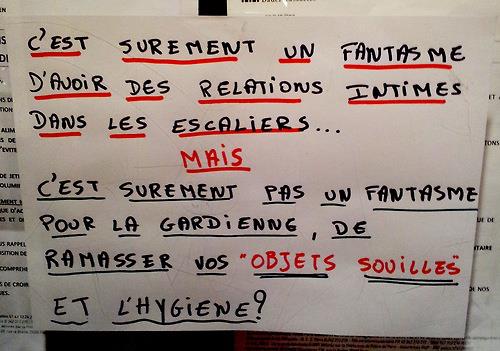 C'EST SUREMENT UN FANTASME
D'AVOIR DES RELATIONS INTIMES
DANS LES ESCALIERS...
MAIS
C'EST SUREMENT PAS UN FANTASME
POUR LA GARDIENNE, DE
RAMASSER VOS "OBJETS SOUILLES"
ET L'HYGIENE?